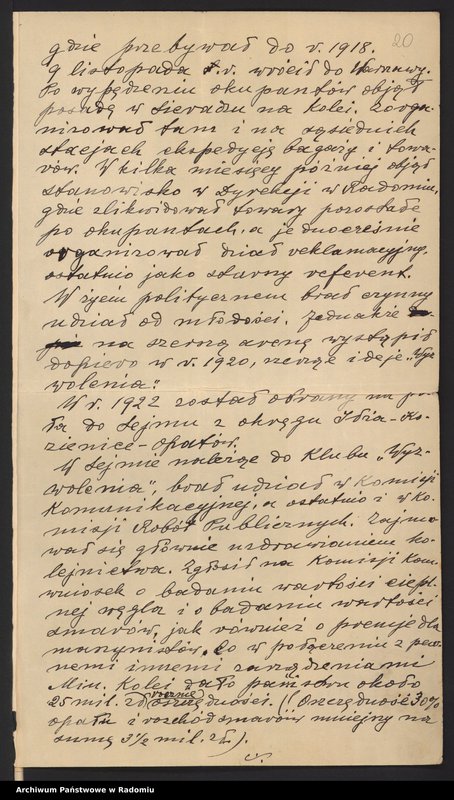 20
gdzie przebywał do r. 1918.
9 listopada t.r. wrócił do Warszawy.
Po wypędzeniu okupantów objął
posadę w Sieradzu na kolei. Zorga-
nizował tam i na sąsiednich
stacjach ekspedycję bagaży i towa-
rów. W kilka miesięcy później objął
stanowisko w Dyrekcji w Radomiu,
gdzie zlikwidował towary pozostałe
po okupantach, a jednocześnie
organizował dział reklamacyjny,
ostatnio jako starszy referent.
W życiu politycznem brał czynny
udział od młodości. Jednakże
na szerszą arenę wystąpił
dopiero w r. 1920, szerząc ideję „Wyz
wolenia".
W r. 1922 został obrany na pos
ła do Sejmu z okręgu Iłża-Ko-
zienice-Opatów.
W Sejmie należąc do Klubu „Wyz-
wolenia", brał udział w Komisji
Komunikacyjnej, a ostatnio i w Ko-
misji Robót Publicznych. Zajmo
wał się głównie uzdrawianiem ko-
lejnictwa. Zgłosił na Komisji Kom.
wniosek o badaniu wartości ciepl-
nej węgla i o badaniu wartości
smarów, jak również o premje dla
maszynistów. Co w połączeniu z pew-
nemi innemi zarządzeniami
Min. Kolei dało państwu około
25 mil. zł rocznie oszczędności. (Oszczędność 30%
opału i rozchód smarów mniejszy na
sumę 3½ mil. zł.).
Archiwum Państwowe w Radomiu